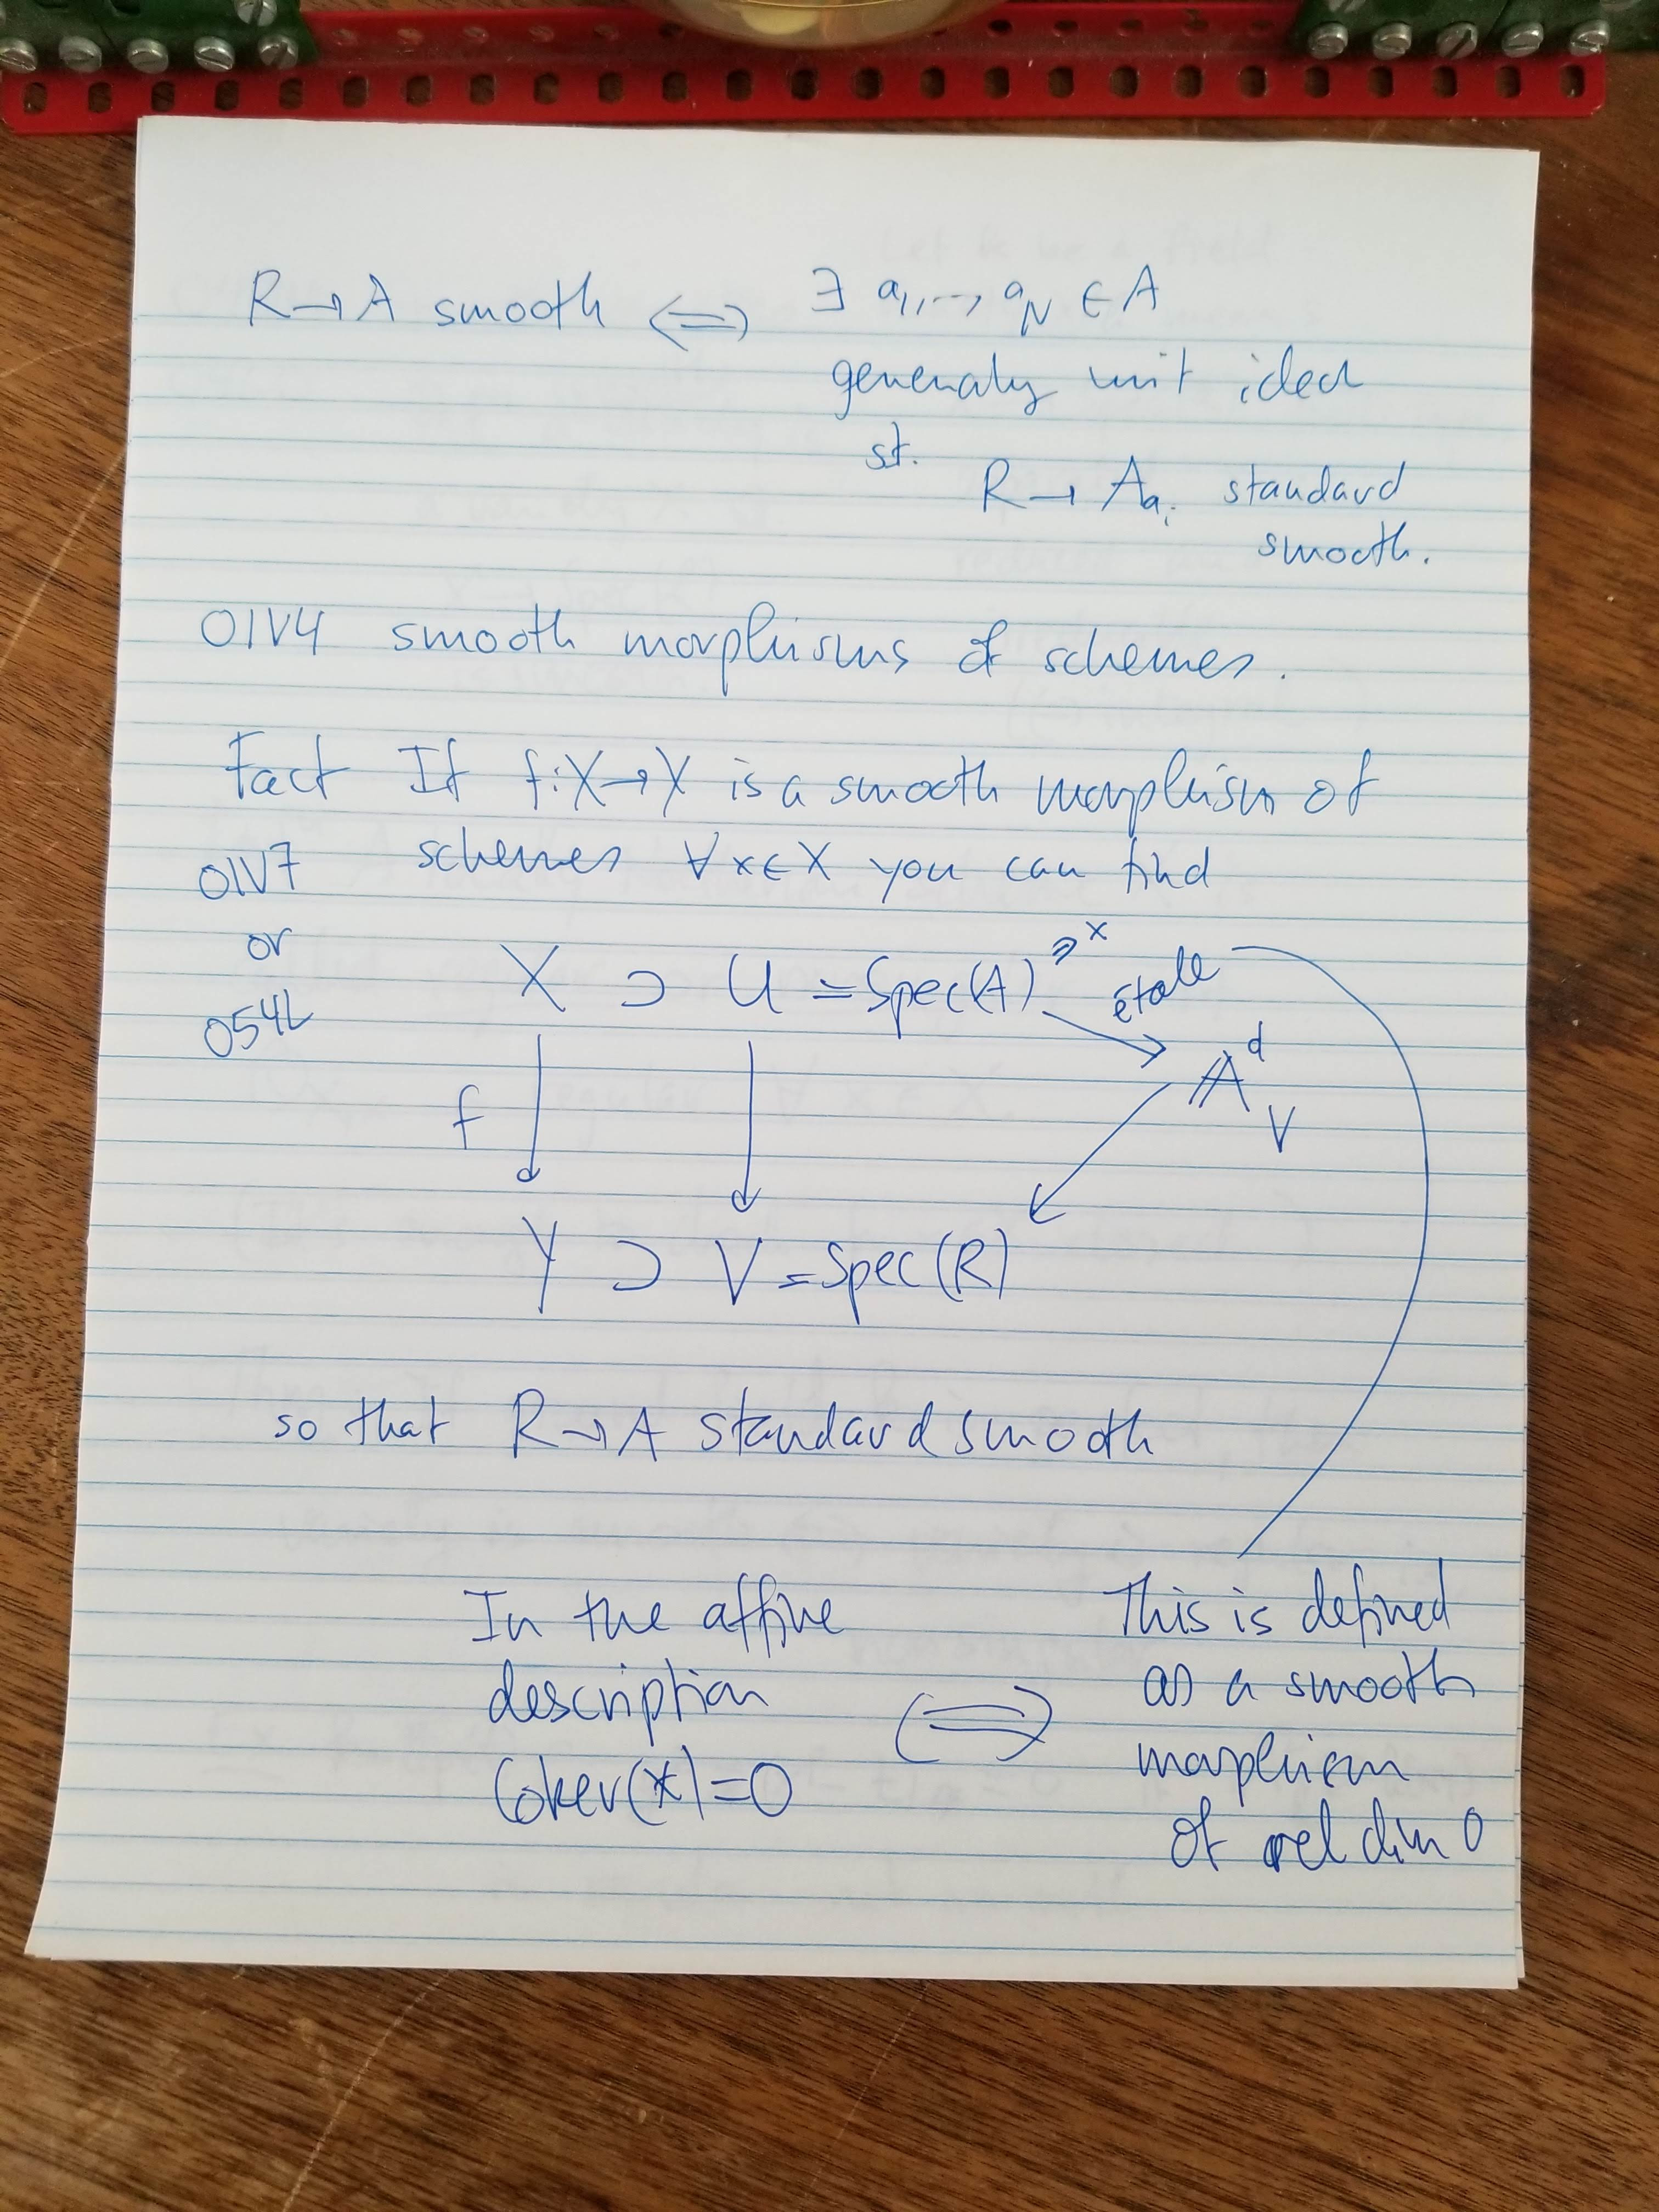 R → A smooth ⟺ ∃ a₁, ..., a_N ∈ A
generating unit ideal
st.
R → A_{a_i} standard
smooth.
01V4 smooth morphisms of schemes.
Fact If f: X → Y is a smooth morphism of
01V7 schemes ∀ x ∈ X you can find
or
054L
X ⊃ U = Spec(A) ∋ x
étale
f
𝔸^d_V
Y ⊃ V = Spec(R)
so that R → A standard smooth
In the affine
description
Coker(*) = 0
⟺
This is defined
as a smooth
morphism
of rel dim 0